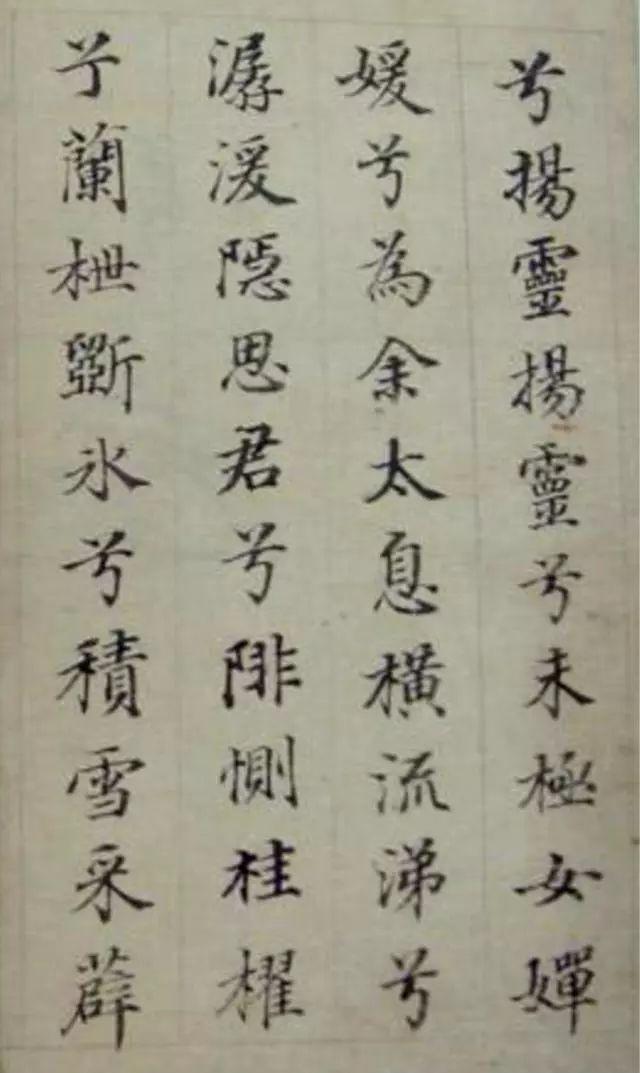 兮揚靈揚靈兮未極女嬋
媛兮為余太息橫流涕兮
潺湲隱思君兮陫惻桂櫂
兮蘭枻斲氷兮積雪采薜